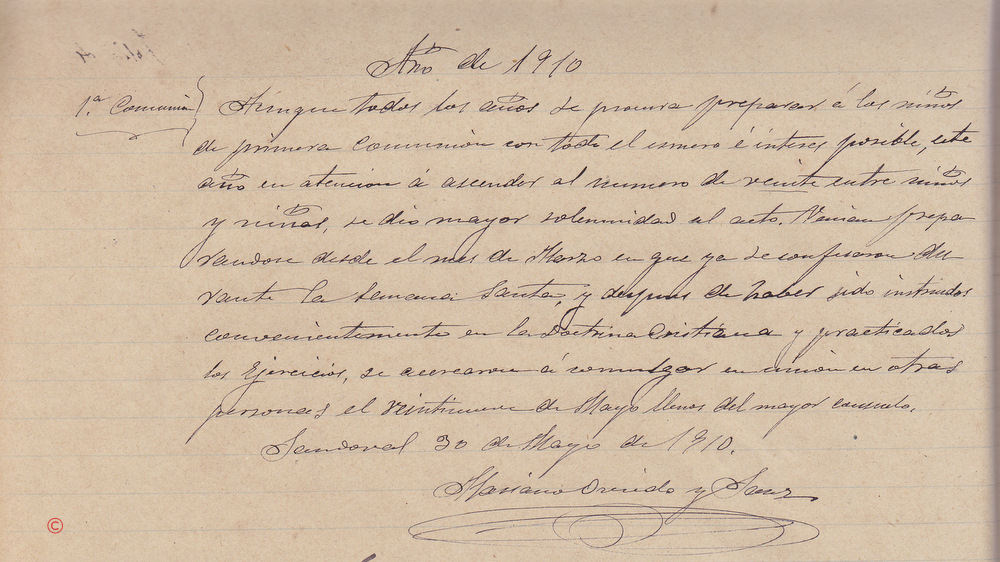 Año de 1910
1.ª Comunión
Aunque todos los años se procura preparar á los niños
de primera Comunión con todo el esmero é interes posible, este
año en atencion á ascender al numero de veinte entre niños
y niñas, se dio mayor solemnidad al acto. Venian prepa
randose desde el mes de Marzo en que ya se confesaron du
rante la Semana Santa, y despues de haber sido instruidos
convenientemente en la Doctrina Cristiana y practicados
los Ejercicios, se acercaron á comulgar en union en otras
personas el veintinueve de Mayo llenos del mayor consuelo.
Sandoval 30 de Mayo de 1910.
Mariano Oviedo y Sanz
©